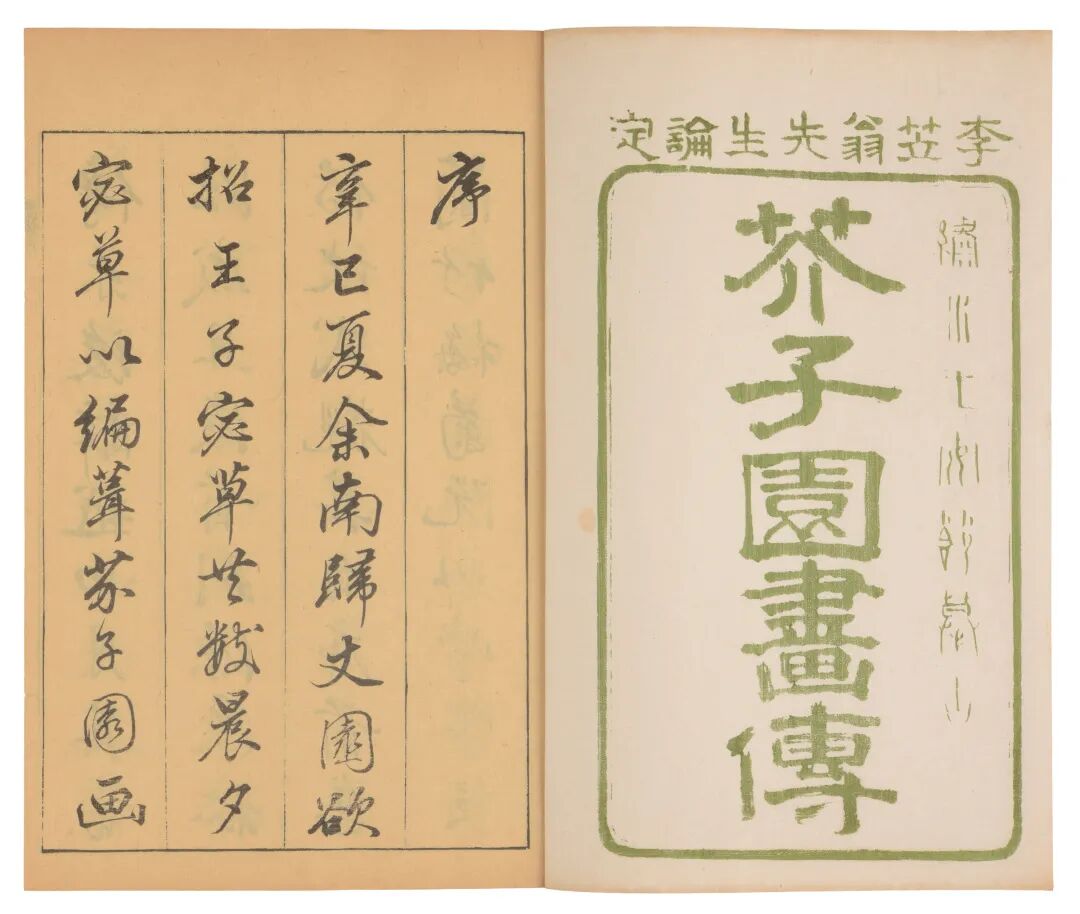 李笠翁先生論定
芥子園畫傳
序
辛巳夏余南歸丈園欲
招王子宓草共数晨夕
宓草以編葺芥子園画